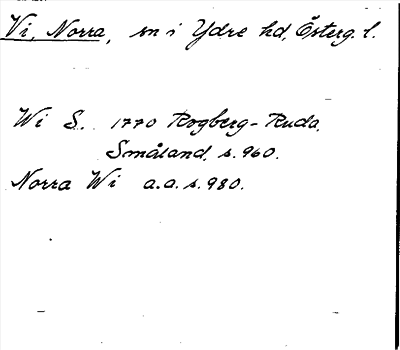 Vi, Norra, sn i Ydre hd, Österg. l.
Wi S. 1770 Rogberg-Ruda,
Småland, s. 960.
Norra Wi a.a. s. 980.